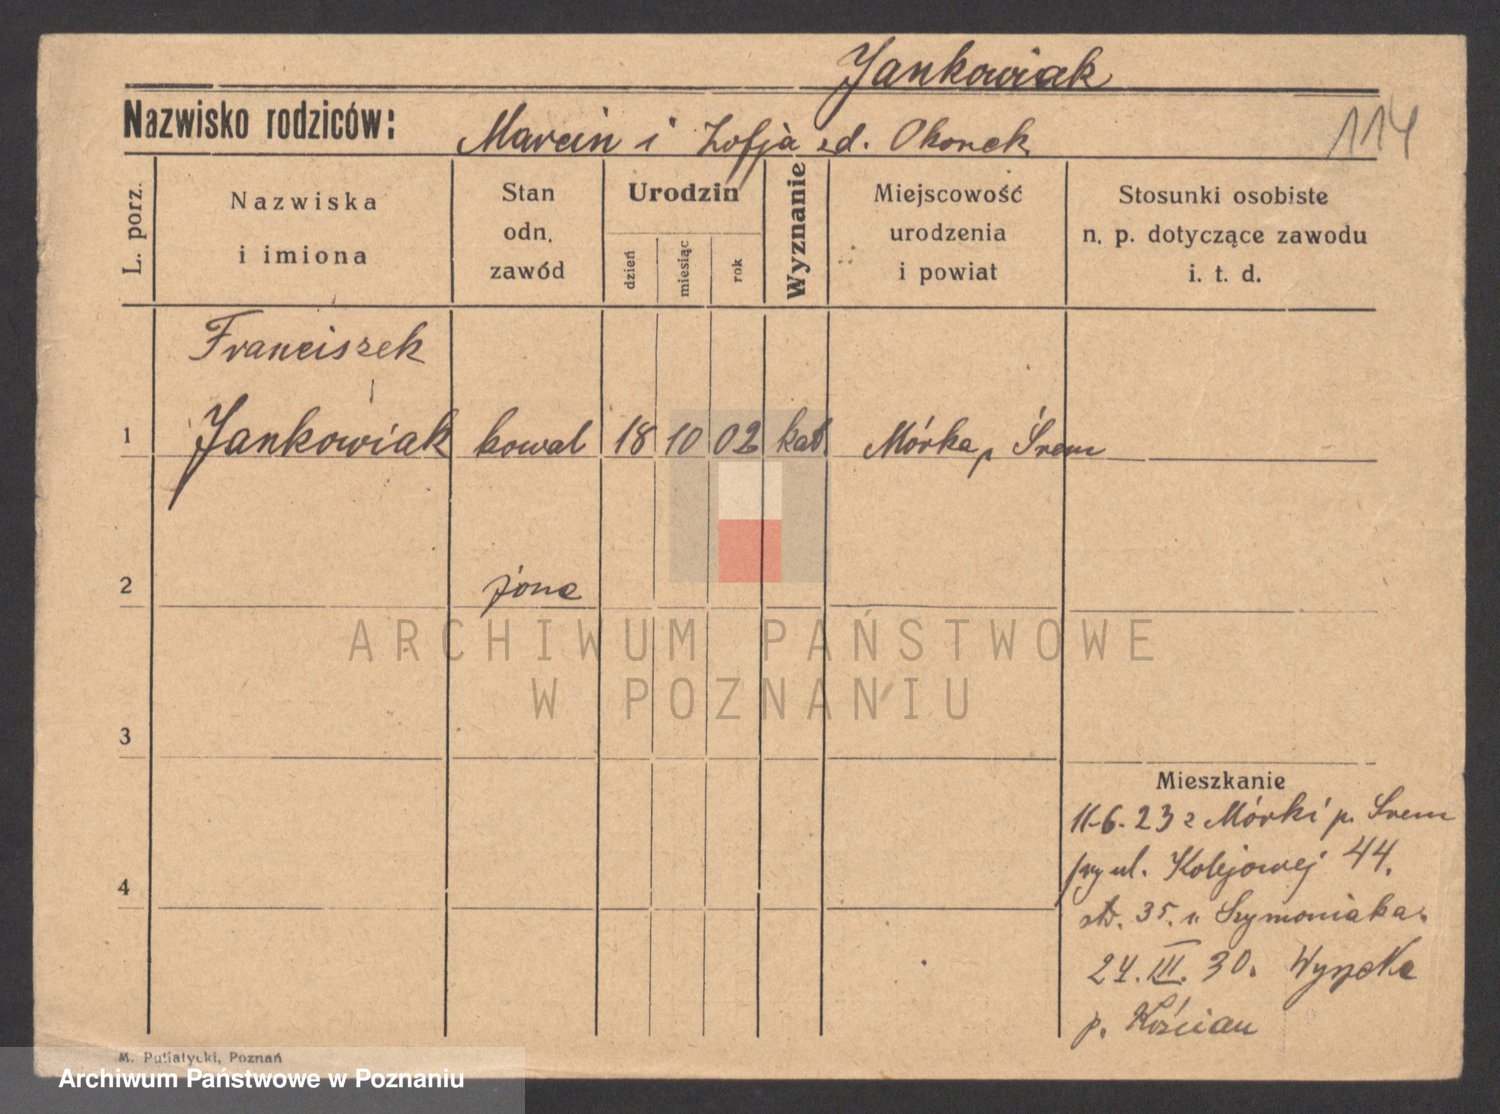 Jankowiak
Nazwisko rodziców:
Marcin i Zofja zd. Okonek
114
L. porz.
Nazwiska
i imiona
Stan
odn.
zawód
Urodzin
dzień
miesiąc
rok
Wyznanie
Miejscowość
urodzenia
i powiat
Stosunki osobiste
n. p. dotyczące zawodu
i. t. d.
Franciszek
1 Jankowiak kowal 18 10 02 kat. Mórka p Śrem
2 żona
ARCHIWUM PAŃSTWOWE
W POZNANIU
3
Mieszkanie
11-6-23 z Mórki p. Śrem
przy ul. Kolejowej 44.
str. 35. u Szymoniaka.
4
24. III. 30.
p. Kościan
M. Putiatycki, Poznań
Archiwum Państwowe w Poznaniu